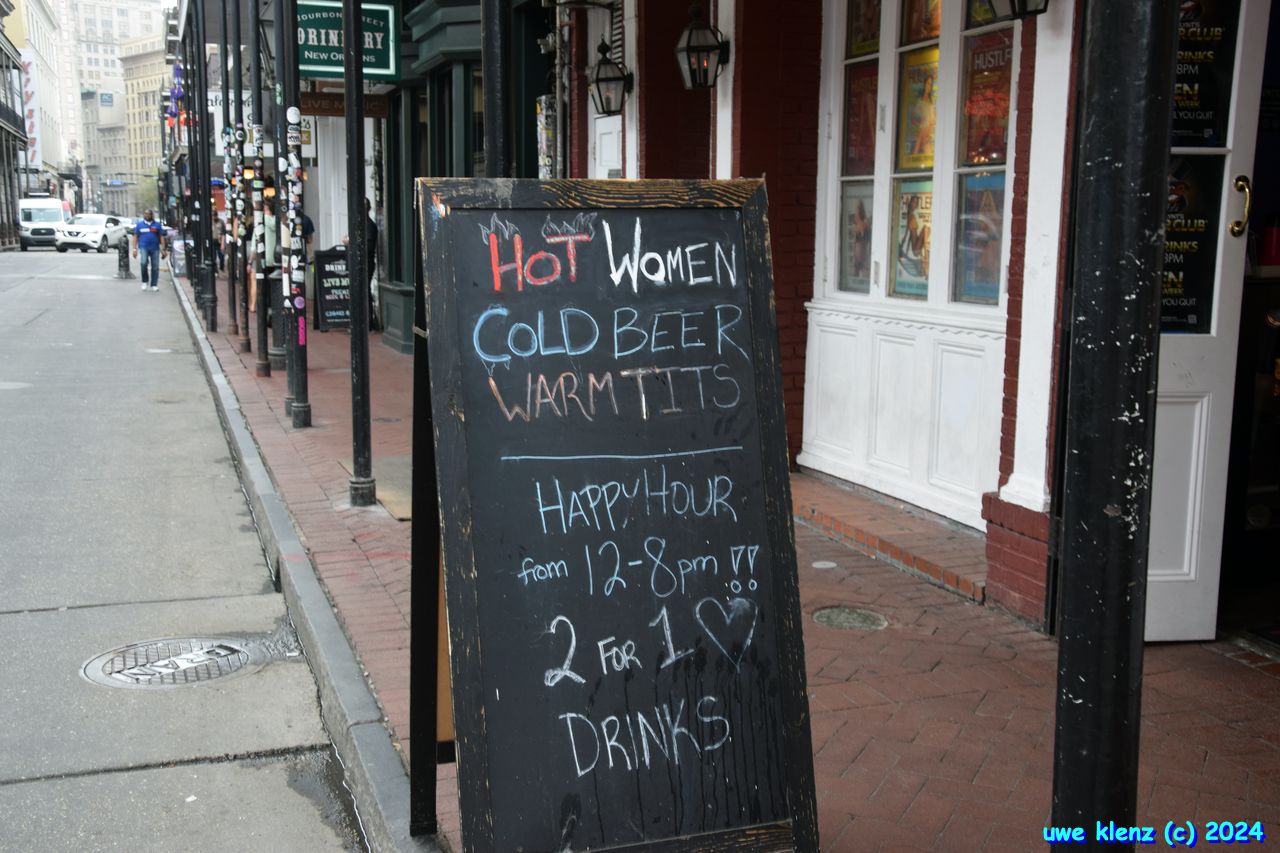 BOURBON STREET
DRINKERY
NEW ORLEANS
LIVE MUSIC
HUSTLER
HOT WOMEN
COLD BEER
WARM TITS
HAPPY HOUR
from 12-8pm !!
2 FOR 1
DRINKS
DRAIN
CLUB
8PM
YOU QUIT
DRINKS
YOU QUIT
uwe klenz (c) 2024